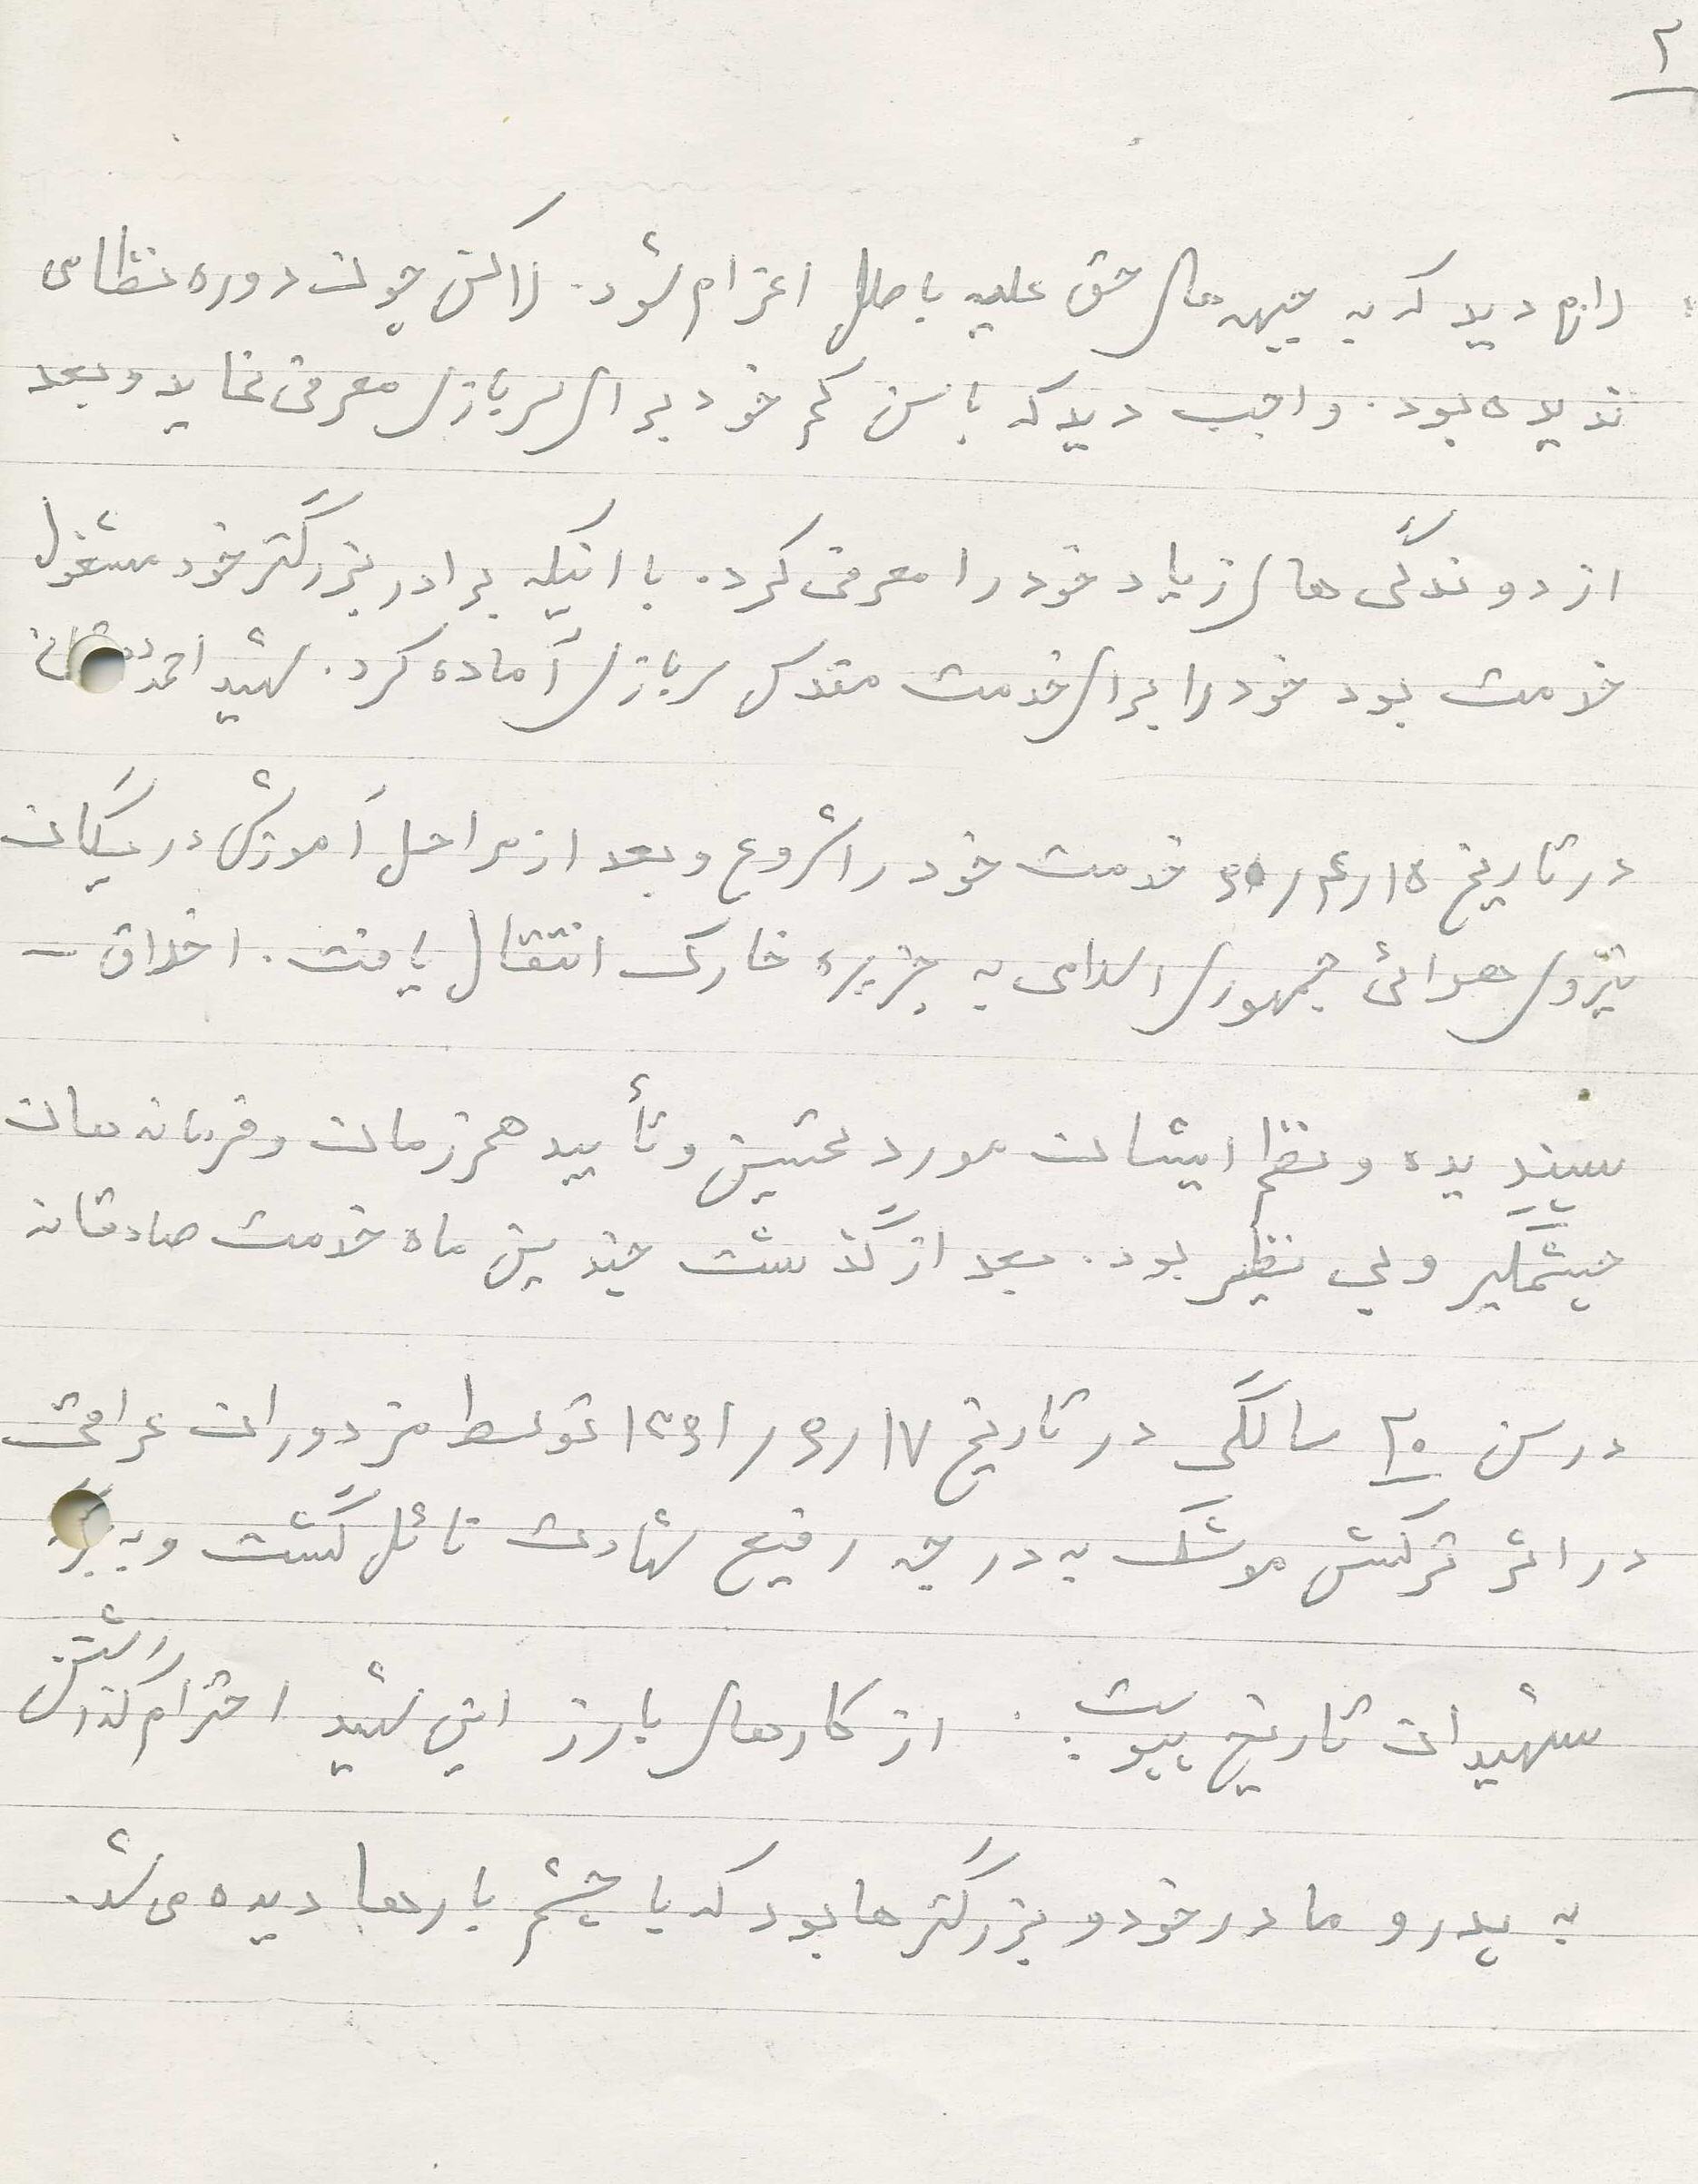 ۲
لازم دید که به جبهه های حق علیه باطل اعزام شود. لاکن چون دوره نظامی
ندیده بود. واجب دید که با سن کم خود برای سربازی معرفی نماید و بعد
از دوندگی های زیاد خود را معرفی کرد. با اینکه برادر بزرگتر خود مشغول
خدمت بود خود را برای خدمت مقدس سربازی آماده کرد. شهید احمد
در تاریخ خدمت خود را شروع و بعد از مراحل آموزش در یگان
نیروی هوائی جمهوری اسلامی به جزیره خارک انتقال یافت. اخلاق –
پسندیده و نظم ایشان مورد تحسین و تأیید همرزمان و فرماندهان
چشمگیر و بی نظیر بود. بعد از گذشت چندین ماه خدمت صادقانه
در سن ۲۰ سالگی در تاریخ ۱۷/۶/۱۳۶۱ توسط مزدوران عراقی
در اثر ترکش موشک به درجه رفیع شهادت نائل گشت و به
شهیدان تاریخ پیوست. از کارهای بارز این شهید احترام گذاشتن
به پدر و مادر خود و بزرگترها بود که با چشم بارها دیده می شد.